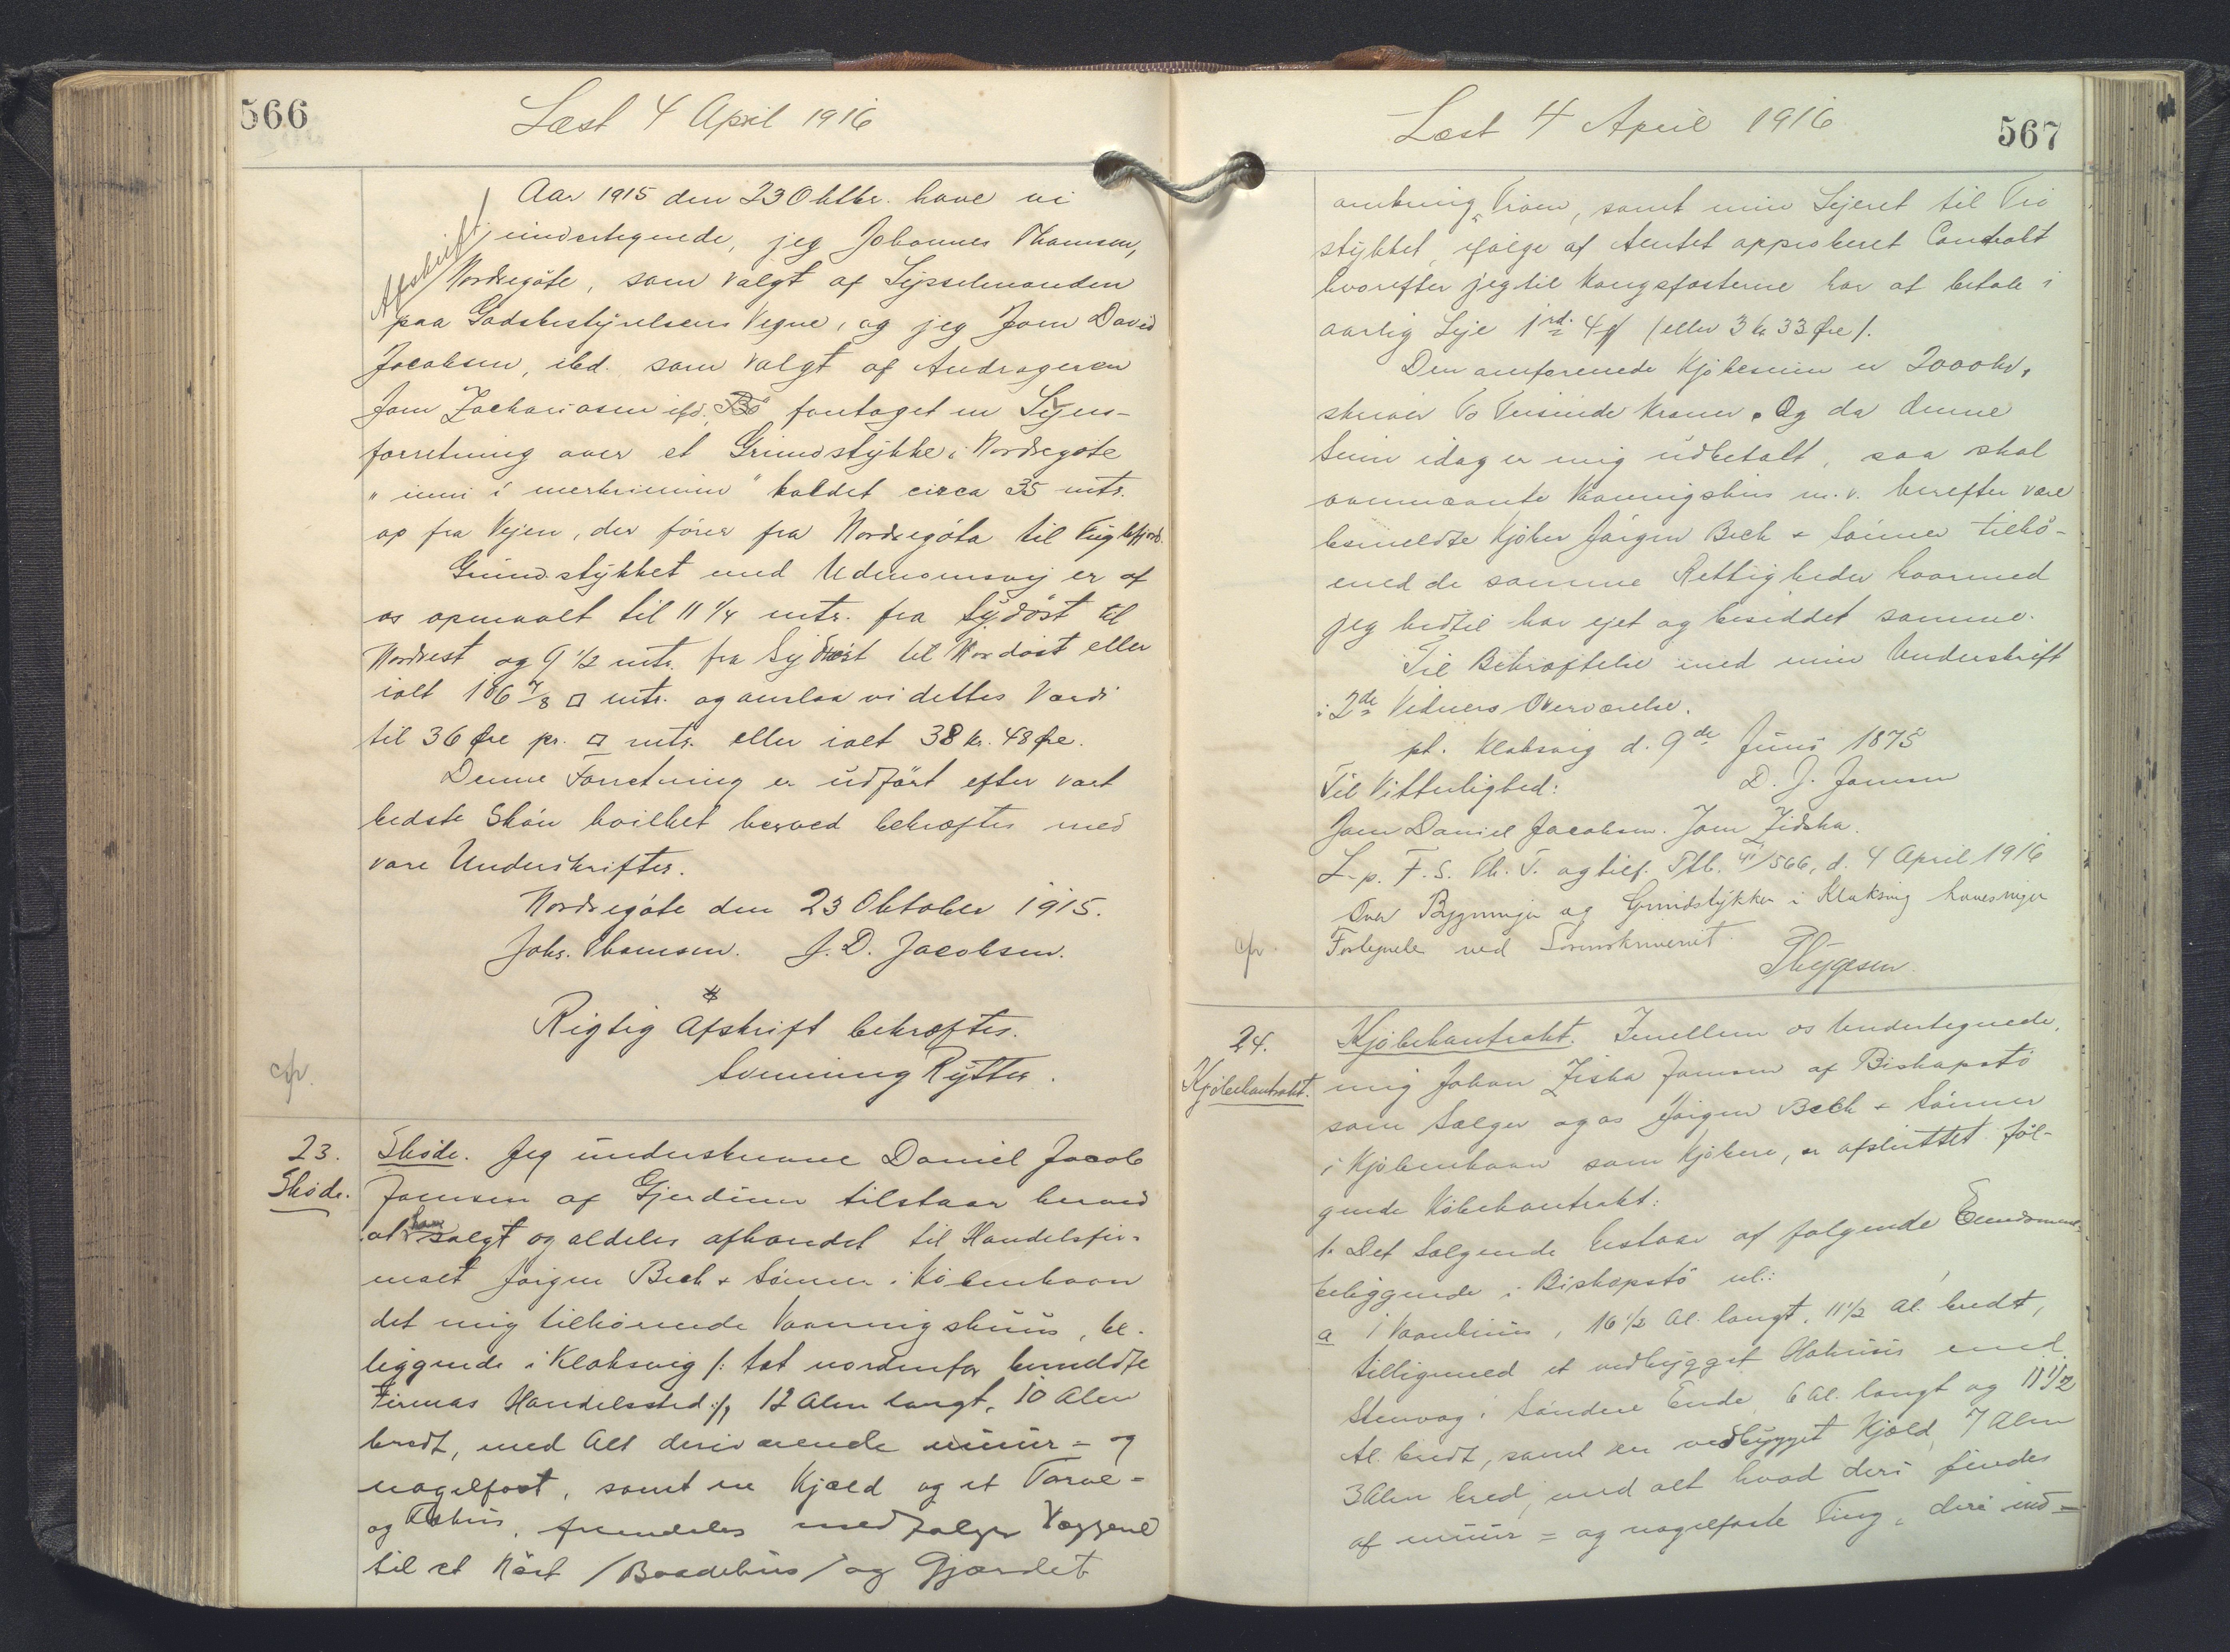 566
Læst 4 April 1916
Afskrift
Aar 1915 den 23 Oktbr. have vi
undertegnede, jeg Johannes Thomsen,
Nordregöte, som valgt af Sysselmanden
paa Godsbestyrelsens Vegne, og jeg Joen David
Jacobsen, ibd. som valgt af Andrageren
Joen Zachariasen ibd. foretaget en Syns-
forretning over et Grundstykke i Nordregöte
" inni i " kaldet circa 35 mtr.
op fra Vejen, der förer fra Nordregöta til Fuglefjord.
Grundstykket med Udenomsvej er af
os opmaalt til 11 1/4 mtr. fra Sydöst til
Nordvest og 9 1/2 mtr. fra Sydvest til Nordöst eller
ialt 106 7/8 □ mtr. og anslaa vi dettes Værdi
til 36 Øre pr. □ mtr. eller ialt 38 kr. 48 Øre.
Denne Forretning er udfört efter vort
bedste Skön hvilket herved bekræftes med
vore Underskrifter.
Nordregöte den 23 Oktober 1915.
Johs. Thomsen. J. D. Jacobsen.
Rigtig Afskrift bekræftes.
Svenning Rytter.
cfr.
23.
Skøde.
Skøde. Jeg underskrevne Daniel Jacob
Joensen af Gjerdum tilstaar herved
at have solgt og aldeles afhændet til Handelsfir-
maet Jörgen Bech & Sönner i Köbenhavn
det mig tilhörende Vaaningshuus, be-
liggende i Klaksvig /: tæt nordenfor bemeldte
Firmas Handelssted :/, 12 Alen langt, 10 Alen
bredt, med Alt deriværende muur= og
nagelfast, samt en Kjæld og et Törve=
og , fremdeles medfølger Væggene
til et Nöst /Baadehus/ og Gjærdet
567
Læst 4 April 1916
omkring Tröen, samt min Lejeret til Trö
stykket ifölge af Amtet approberet Contrakt
hvorefter jeg til Kongsfæsterne har at betale i
aarlig Leje 1 rd. 4 ß (eller 3 kr 33 Øre).
Den omförenede Kjøbesum er 2000 kr,
skriver To Tusinde Kroner. Og da denne
Sum idag er mig udbetalt, saa skal
ovennævnte Vaaningshus m. v. herefter være
bemeldte Kjøber Jörgen Bech & Sönner tilhö-
med de samme Rettigheder hvormed
jeg hidtil har ejet og besiddet samme.
Til Bekræftelse med min Underskrift
i 2de Vidners Overværelse.
pt. Klaksvig d. 9de Juni 1875
Til Vitterlighed: D. J. Joensen
Joen Daniel Jacobsen. Joen Zidska.
L. p. F. S. Th. T. og tilf. Ptb. 41/566, d. 4 April 1916
Over Bygninger og Grundstykker i Klaksvig haves ingen
Fortegnelse ved Sorenskriveriet.
Thygesen
cfr.
24.
Kjöbekontrakt.
Kjöbekontrakt. Imellem os Undertegnede,
mig Johan Ziska Joensen af Biskopstö
som Sælger og os Jörgen Bech & Sönner
i Kjöbenhavn som Kjöbere, er afsluttet föl-
gende Köbekontrakt:
1. Det Solgende bestaar af følgende Eiendomme
beliggende i Biskopstö nl.:
a 1 Vaanhuus, 16 1/2 Al. langt, 11 1/2 Al. bredt,
tilligemed et vedbygget med
i Söndere Ende, 6 Al. langt og 11 1/2
Al. bredt, samt en vedbygget Kjæld, 7 Alen
3 Alen bred, med alt hvad deri findes
af muur= og nagelfaste Ting, deri ind=